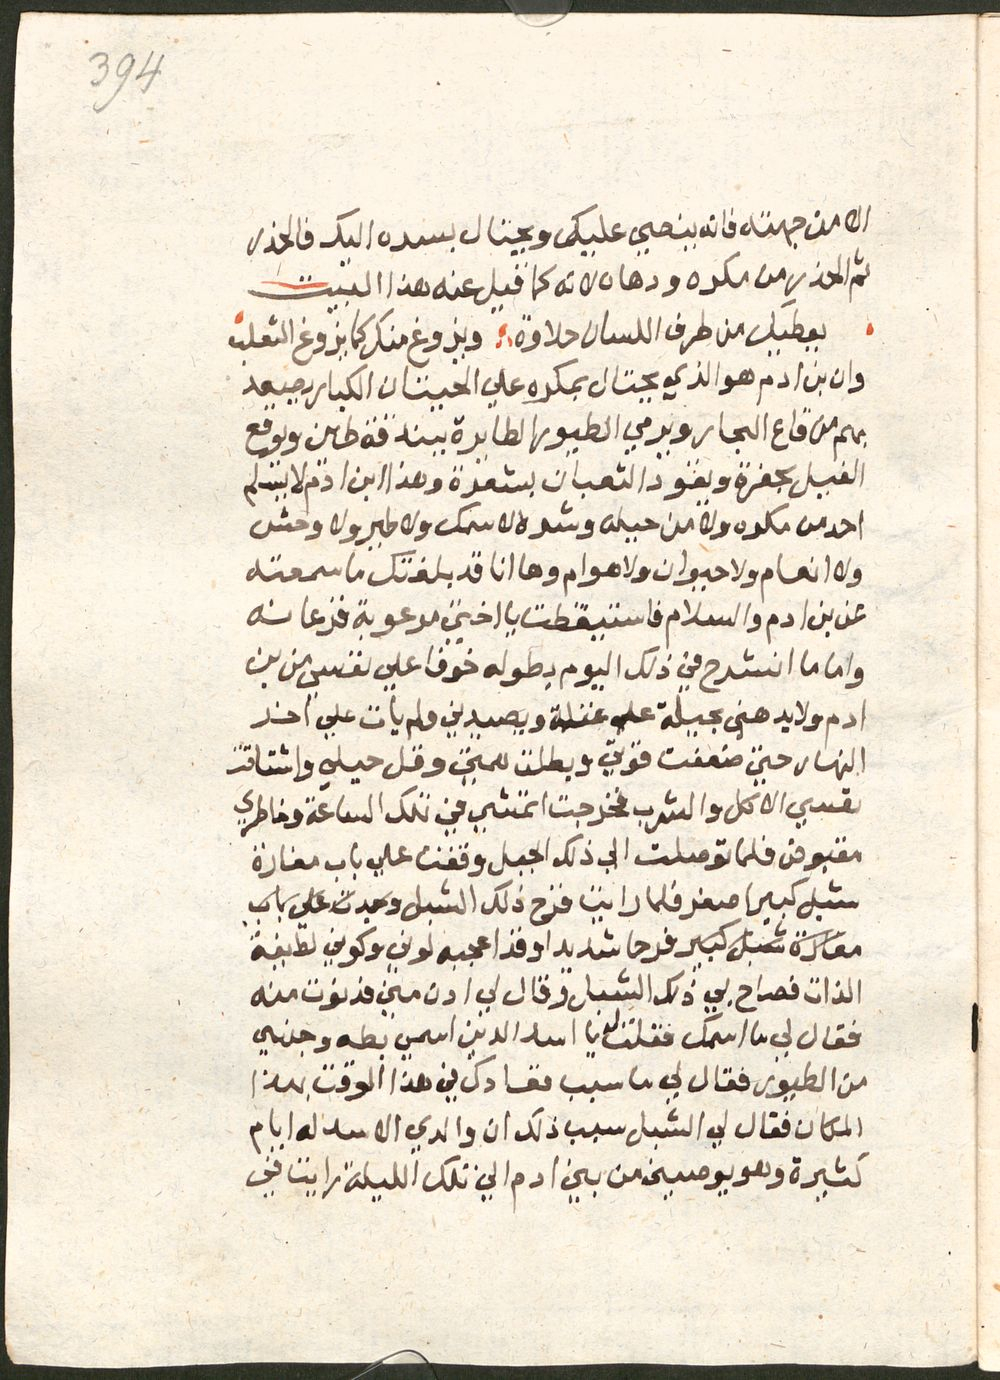 394
الا من جهته فانه ينصبي عليكي ويحتال بسره اليك فالحذر
ثم الحذر من مكره ودهاه لانه كما قيل عنه هذا البيت
يعطيك من طرف اللسان حلاوة ويزوغ منك كما يزوغ الثعلب
وان بن ادم هو الذي يحتال بمكره علي الحيتان الكبار يصيد
بهم من قاع البحار ويرمي الطيور الطايرة ببندقة طين ويوقع
الفيل بحفرة ويقود الثعبان بشعرة وهذا ابن ادم لا يسلم
احد من مكره ولا من حيله وشره لا سمك ولا طير ولا وحش
ولا انعام ولا حيوان ولا هوام وها انا قد بلغتك ما سمعته
عن بن ادم والسلام فاستيقظت يا اختي مرعوبة فزعانه
واما ما انشرح في ذلك اليوم بطوله خوفا علي نفسي من بن
ادم ولايدهني بحيلة علي غفلة ويصيدني ولم يات علي اخر
النهار حتي ضعفت قوتي وبطلت همتي وقل حيلي واشتاقت
نفسي الاكل والشرب فخرجت اتمشي في تلك الساعة وخاطري
مقبوض فلما توصلت الي ذلك الجبل وقفت علي باب مغارة
شبل كبير اصفر فلما رايت فرح ذلك الشبل وجدت علي باب
مغارة شبل كبير فرحا شديدا وقد اعجبه لوني وكوني لطيفة
الذات فصاح بي ذلك الشبل وقال لي ادن مني فدنوت منه
فقال لي ما اسمك فقلت له يا اسد الدين اسمي بطه وجنسي
من الطيور فقال لي ما سبب مقادك في هذا الوقت بهذا
المكان فقال لي الشبل سبب ذلك ان والدي الاسد له ايام
كثيرة وهو يوصيني من بني ادم الي تلك الليلة رايت في